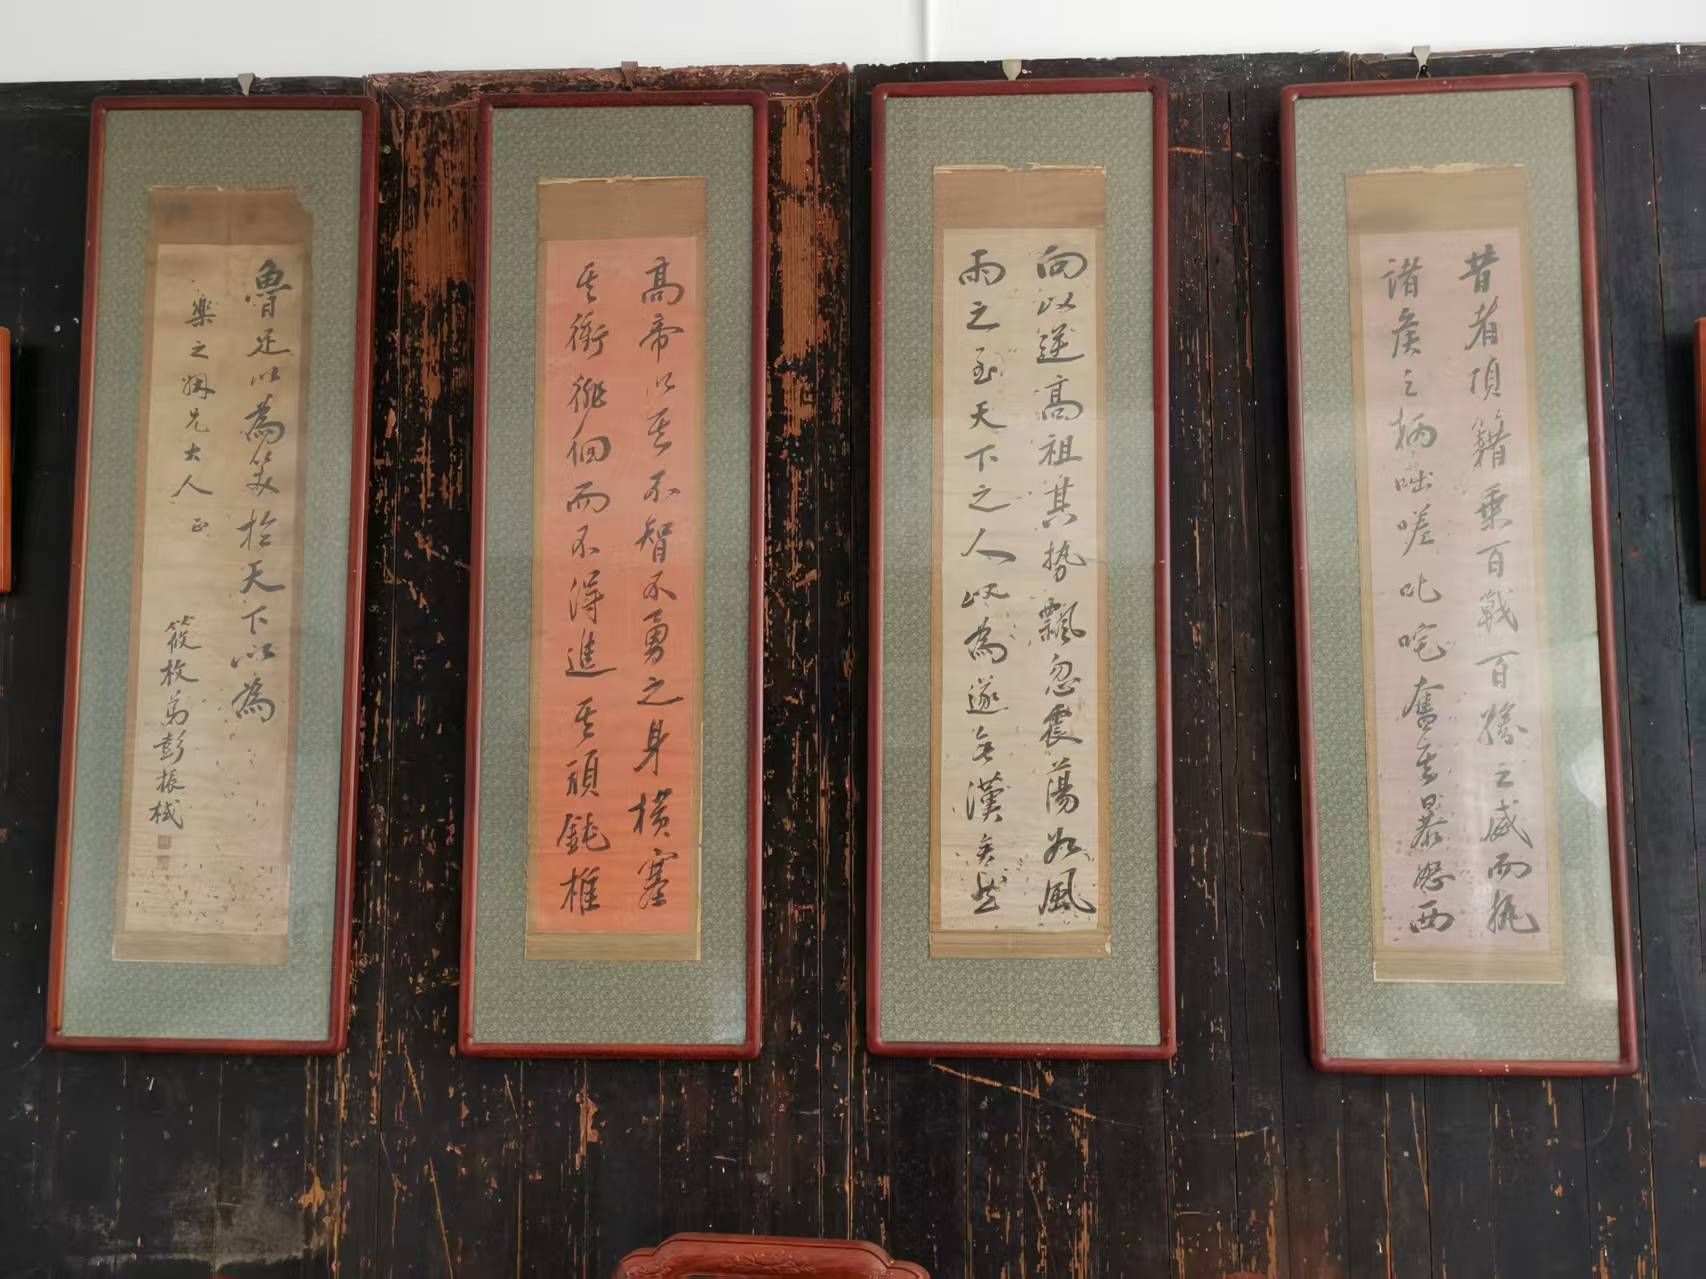 昔者項籍乗百戰百勝之威而執
諸矦之柄咄嗟叱咤奮其暴怒西
向以逆高祖其勢飄忽震蕩如風
雨之至天下之人以為遂無漢矣然
高帝以其不智不勇之身橫塞
其衝徘徊而不得進其頑鈍椎
魯足以為笑於天下以為
樂之姻兄大人正
筱枚弟彭振棫